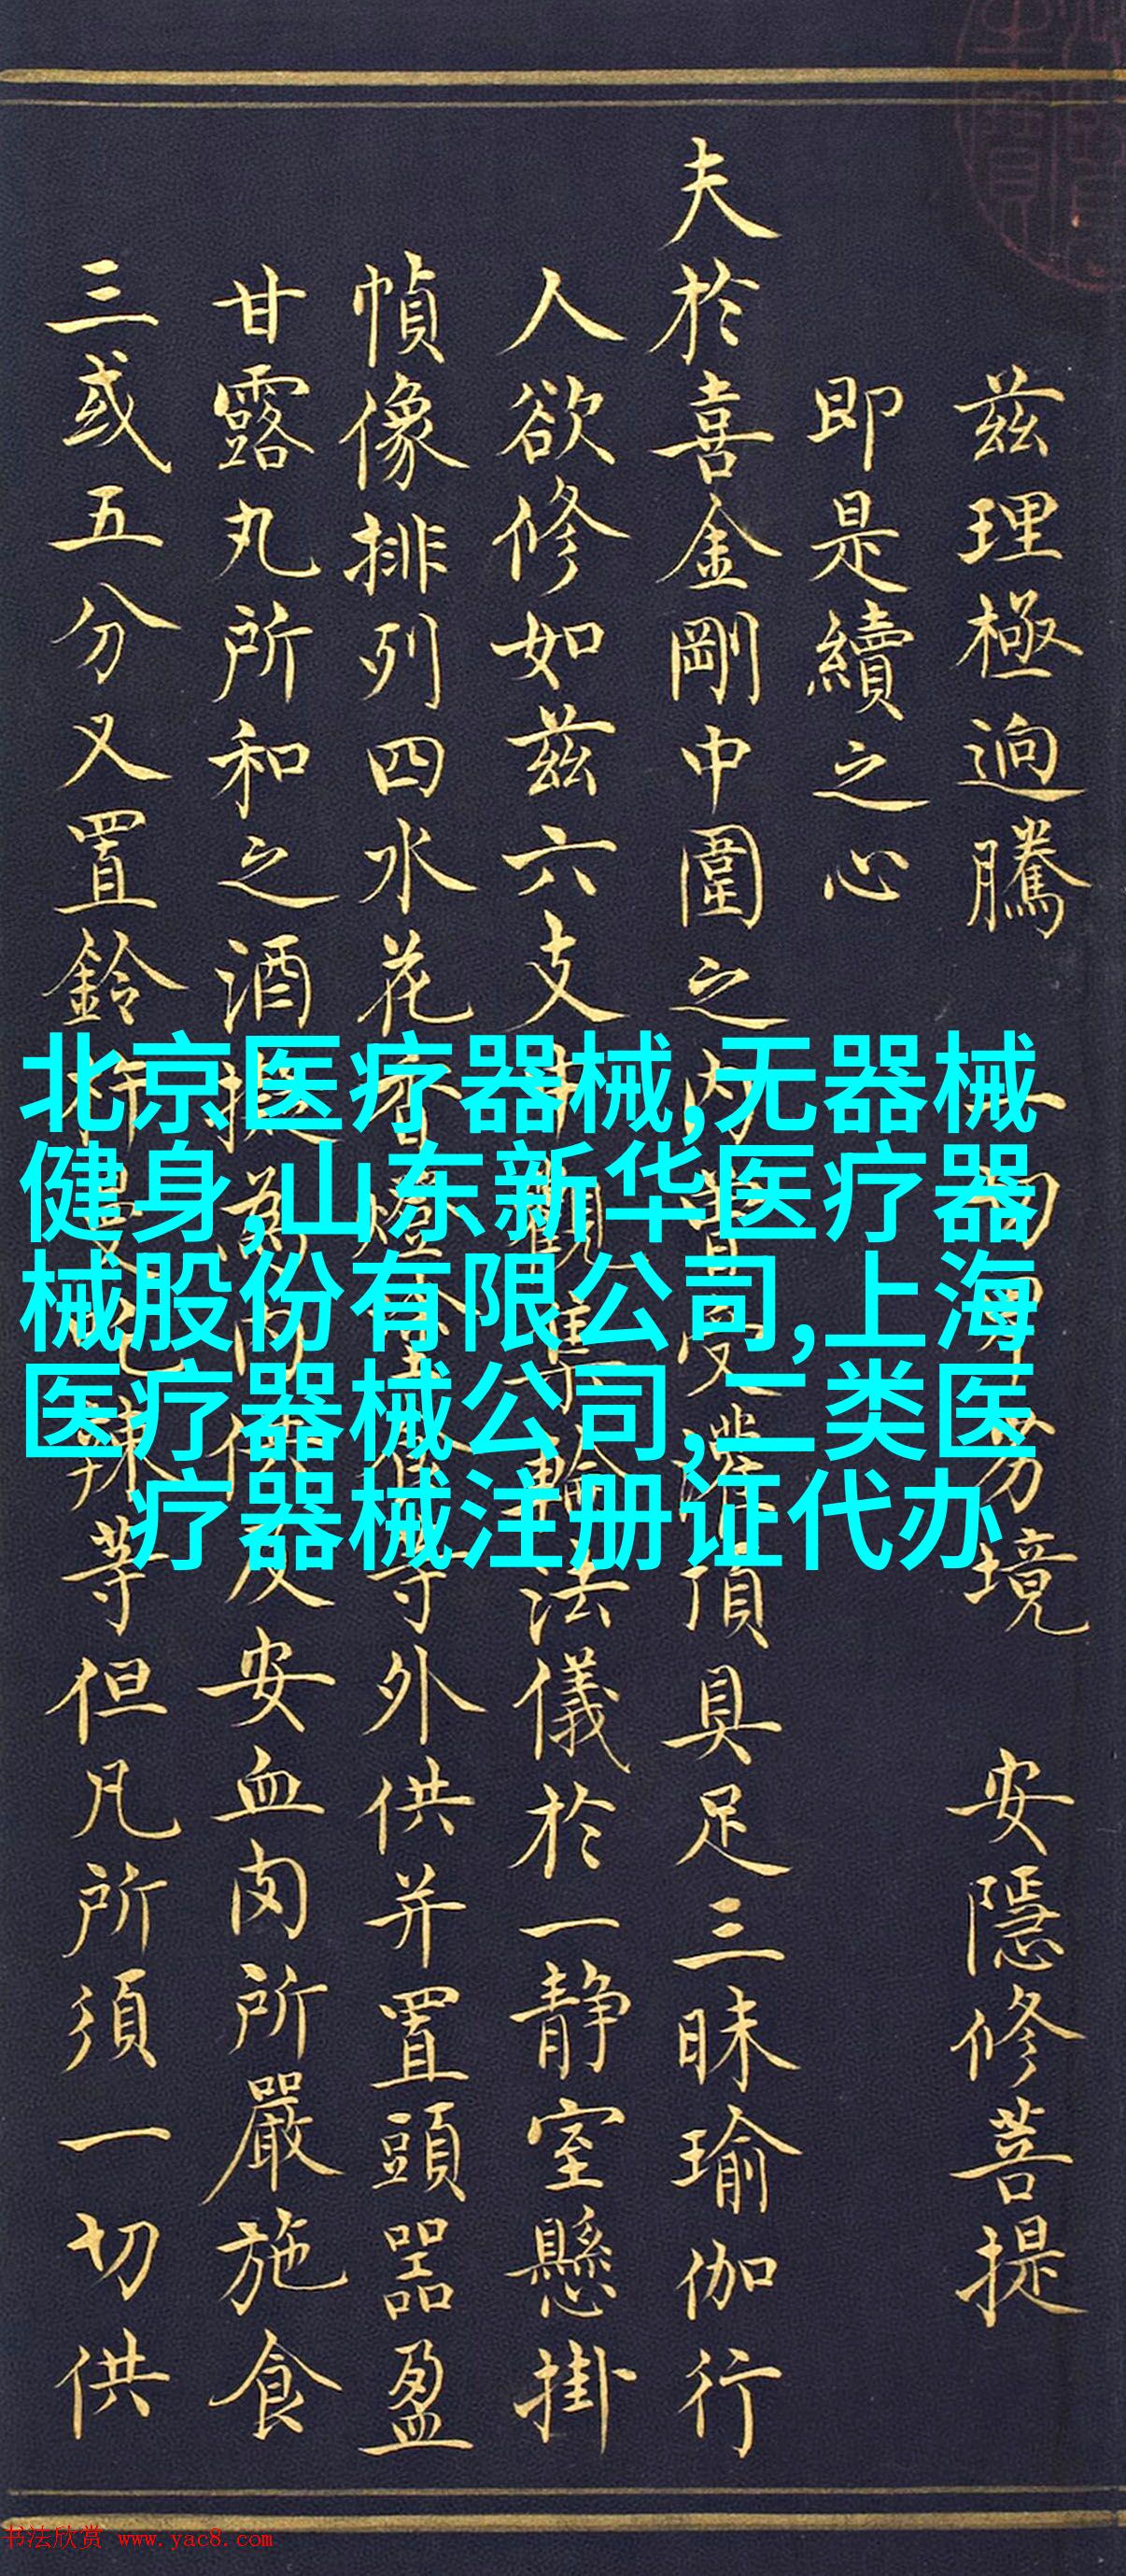 兹理極逈騰 境 安隱修菩提
即是續之心
夫於喜金剛中圍之内 頂具足三昧瑜伽行
人欲修如兹六支 法儀於一静室懸掛
幀像排列四水花 等外供并置頭器盈
甘露丸所和之酒 及安血肉所嚴施食
三或五分又置鈴杵 等但凡所須一切供
北京医疗器械,无器械
健身,山东新华医疗器
械股份有限公司,上海
医疗器械公司,二类医
疗器械注册证代办
书法欣赏 www.yac8.com